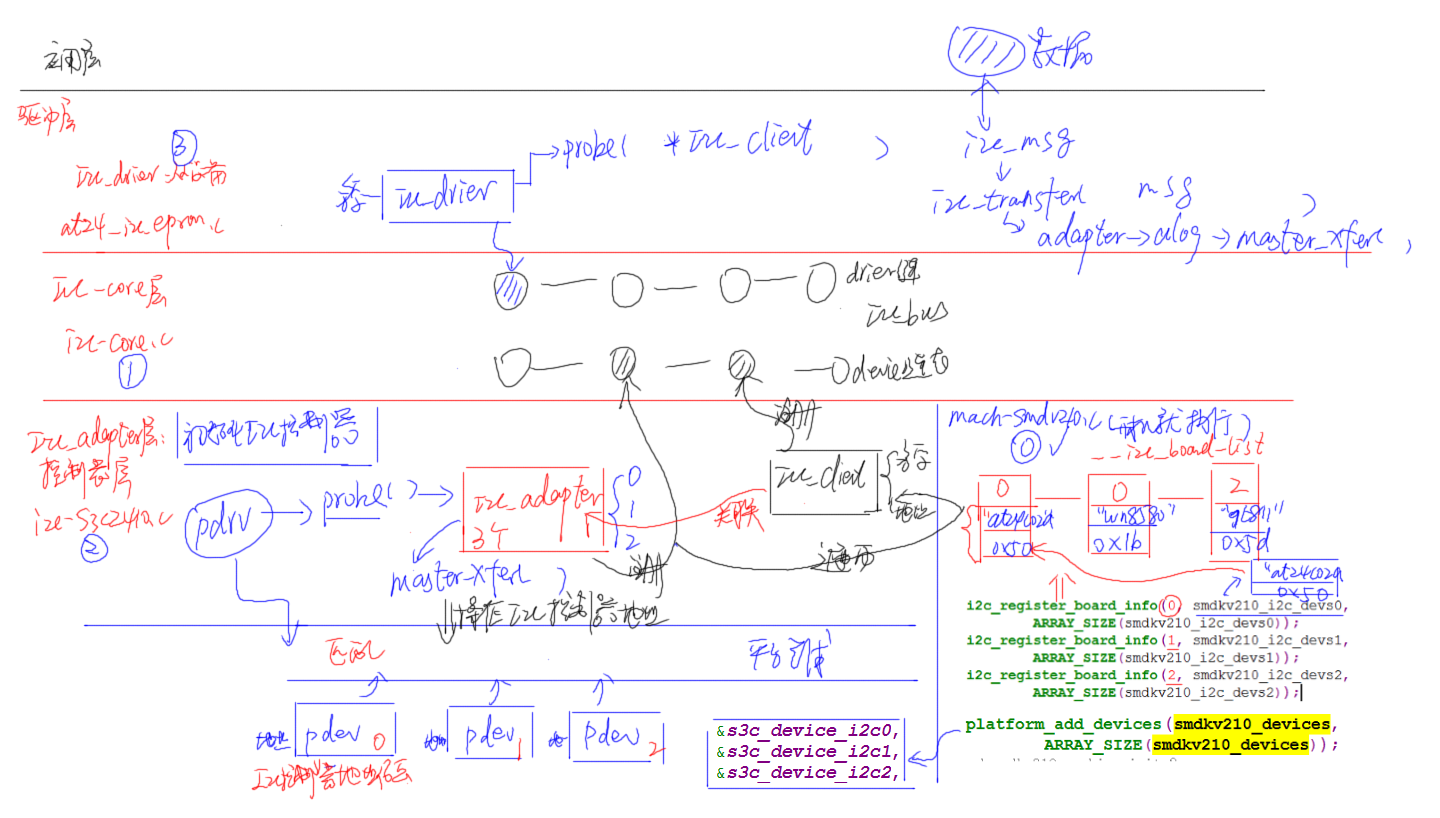 应用层
数据
驱动层
③
i2c_drier
at24_i2c_eprom.c
i2c_drier
probe( *i2c_client )
i2c_msg
i2c_transfer( msg )
adapter→algo→master_xfer( ,
i2c-core层
i2c-core.c
①
drier链
i2c_bus
i2c_adapter层:
控制器层
i2c-s3c2410.c
②
初始化i2c控制器
pdrv
probe( )
i2c_adapter
3个
0
1
2
master_xfer( )
操作i2c控制器地址
注册
注册
关联
i2c_client
名字
地址
遍历
mach-smdv210.c(开机就执行)
⓪
__i2c_board_list
0
0
2
"at24c02a"
0x50
"wm8580"
0x1b
"gt811"
0x5d
"at24c02a
0x50
i2c_register_board_info(0, smdkv210_i2c_devs0,
ARRAY_SIZE(smdkv210_i2c_devs0));
i2c_register_board_info(1, smdkv210_i2c_devs1,
ARRAY_SIZE(smdkv210_i2c_devs1));
i2c_register_board_info(2, smdkv210_i2c_devs2,
ARRAY_SIZE(smdkv210_i2c_devs2));
platform_add_devices(smdkv210_devices,
ARRAY_SIZE(smdkv210_devices));
匹配
平台
地址
pdev 0
pdev 1
pdev 2
&s3c_device_i2c0,
&s3c_device_i2c1,
&s3c_device_i2c2,